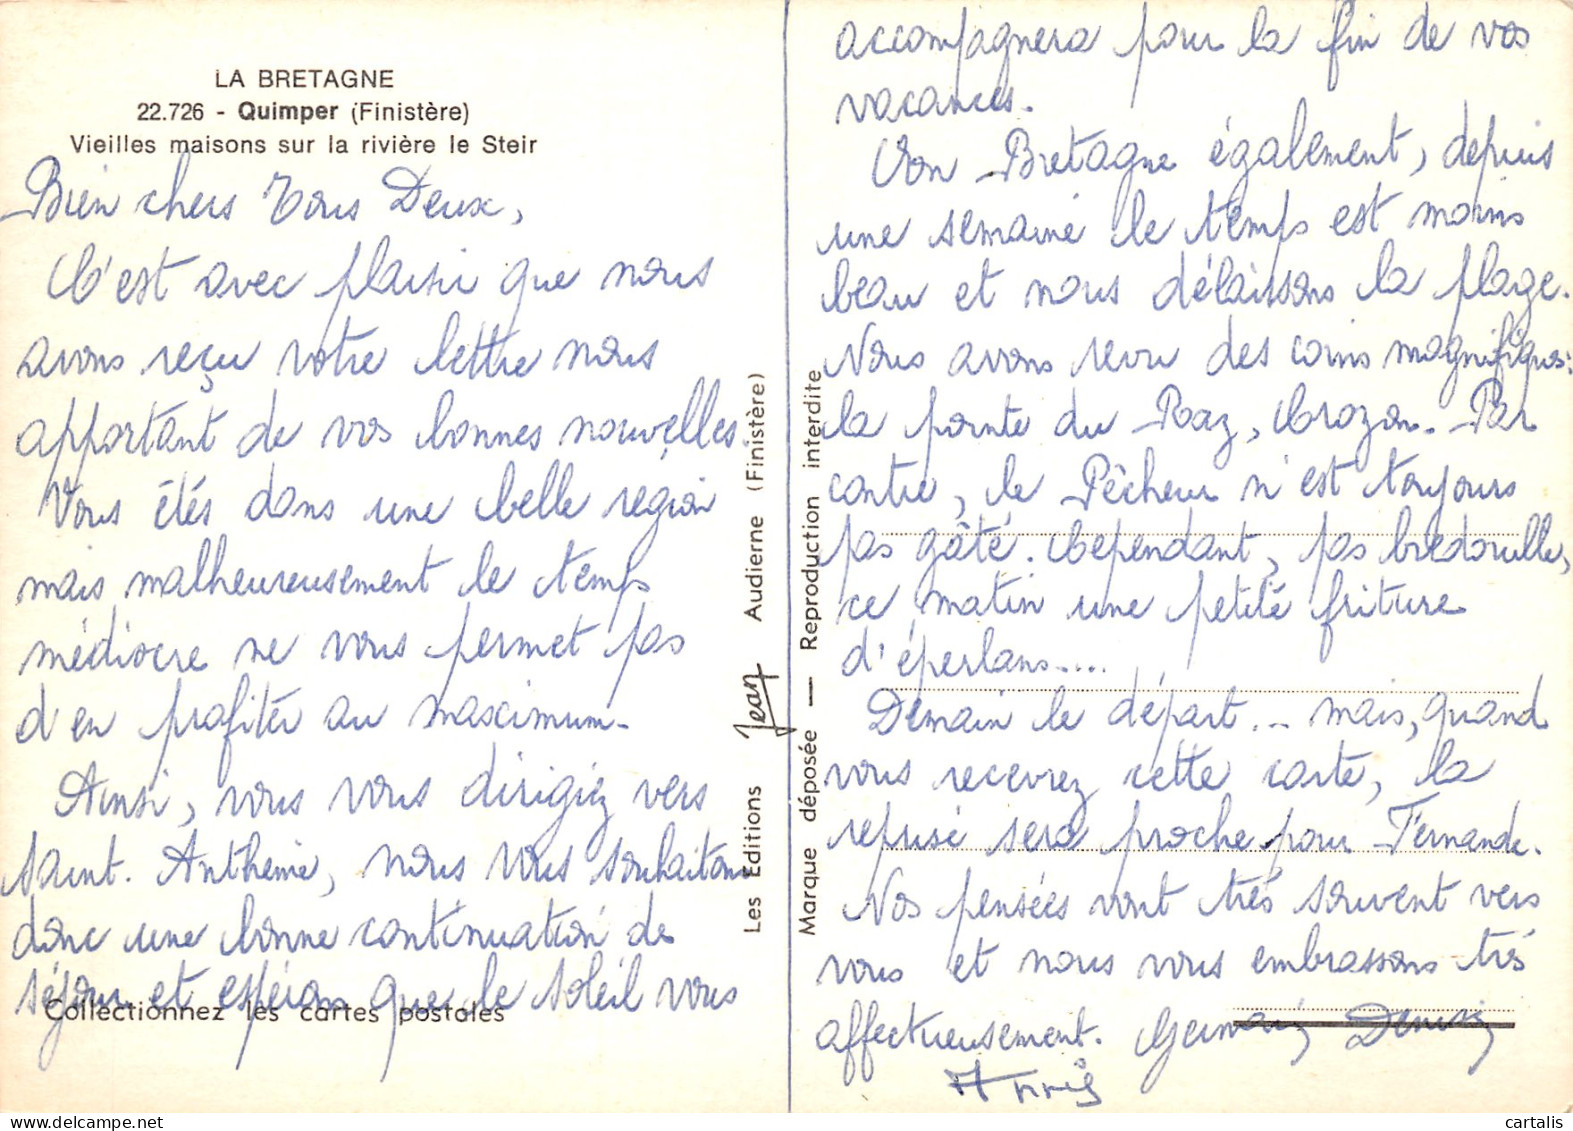 LA BRETAGNE
22.726 - Quimper (Finistère)
Vieilles maisons sur la rivière le Steir
Bien chers Tous Deux,
C'est avec plaisir que nous
avons reçu votre lettre nous
apportant de vos bonnes nouvelles.
Vous êtes dans une belle région
mais malheureusement le temps
médiocre ne vous permet pas
d'en profiter au maximum.
Ainsi, vous vous dirigiez vers
Saint. Anthème, nous vous souhaitons
donc une bonne continuation de
séjour et espérons que le soleil vous
Collectionnez les cartes postales
Les Editions Jean Audierne (Finistère)
Marque déposée — Reproduction interdite
accompagnera pour la fin de vos
vacances.
En Bretagne également, depuis
une semaine le temps est moins
beau et nous délaissons la plage.
Nous avons revu des coins magnifiques:
la pointe du Raz, Crozon. Par
contre, le Pêcheur n'est toujours
pas gâté. Cependant, pas bredouille,
ce matin une petite friture
d'éperlans....
Demain le départ... mais, quand
vous recevrez cette carte, la
refusé sera proche pour Fernande.
Nos pensées vont très souvent vers
vous et nous vous embrassons très
affectueusement. Germain Denise
cartalis